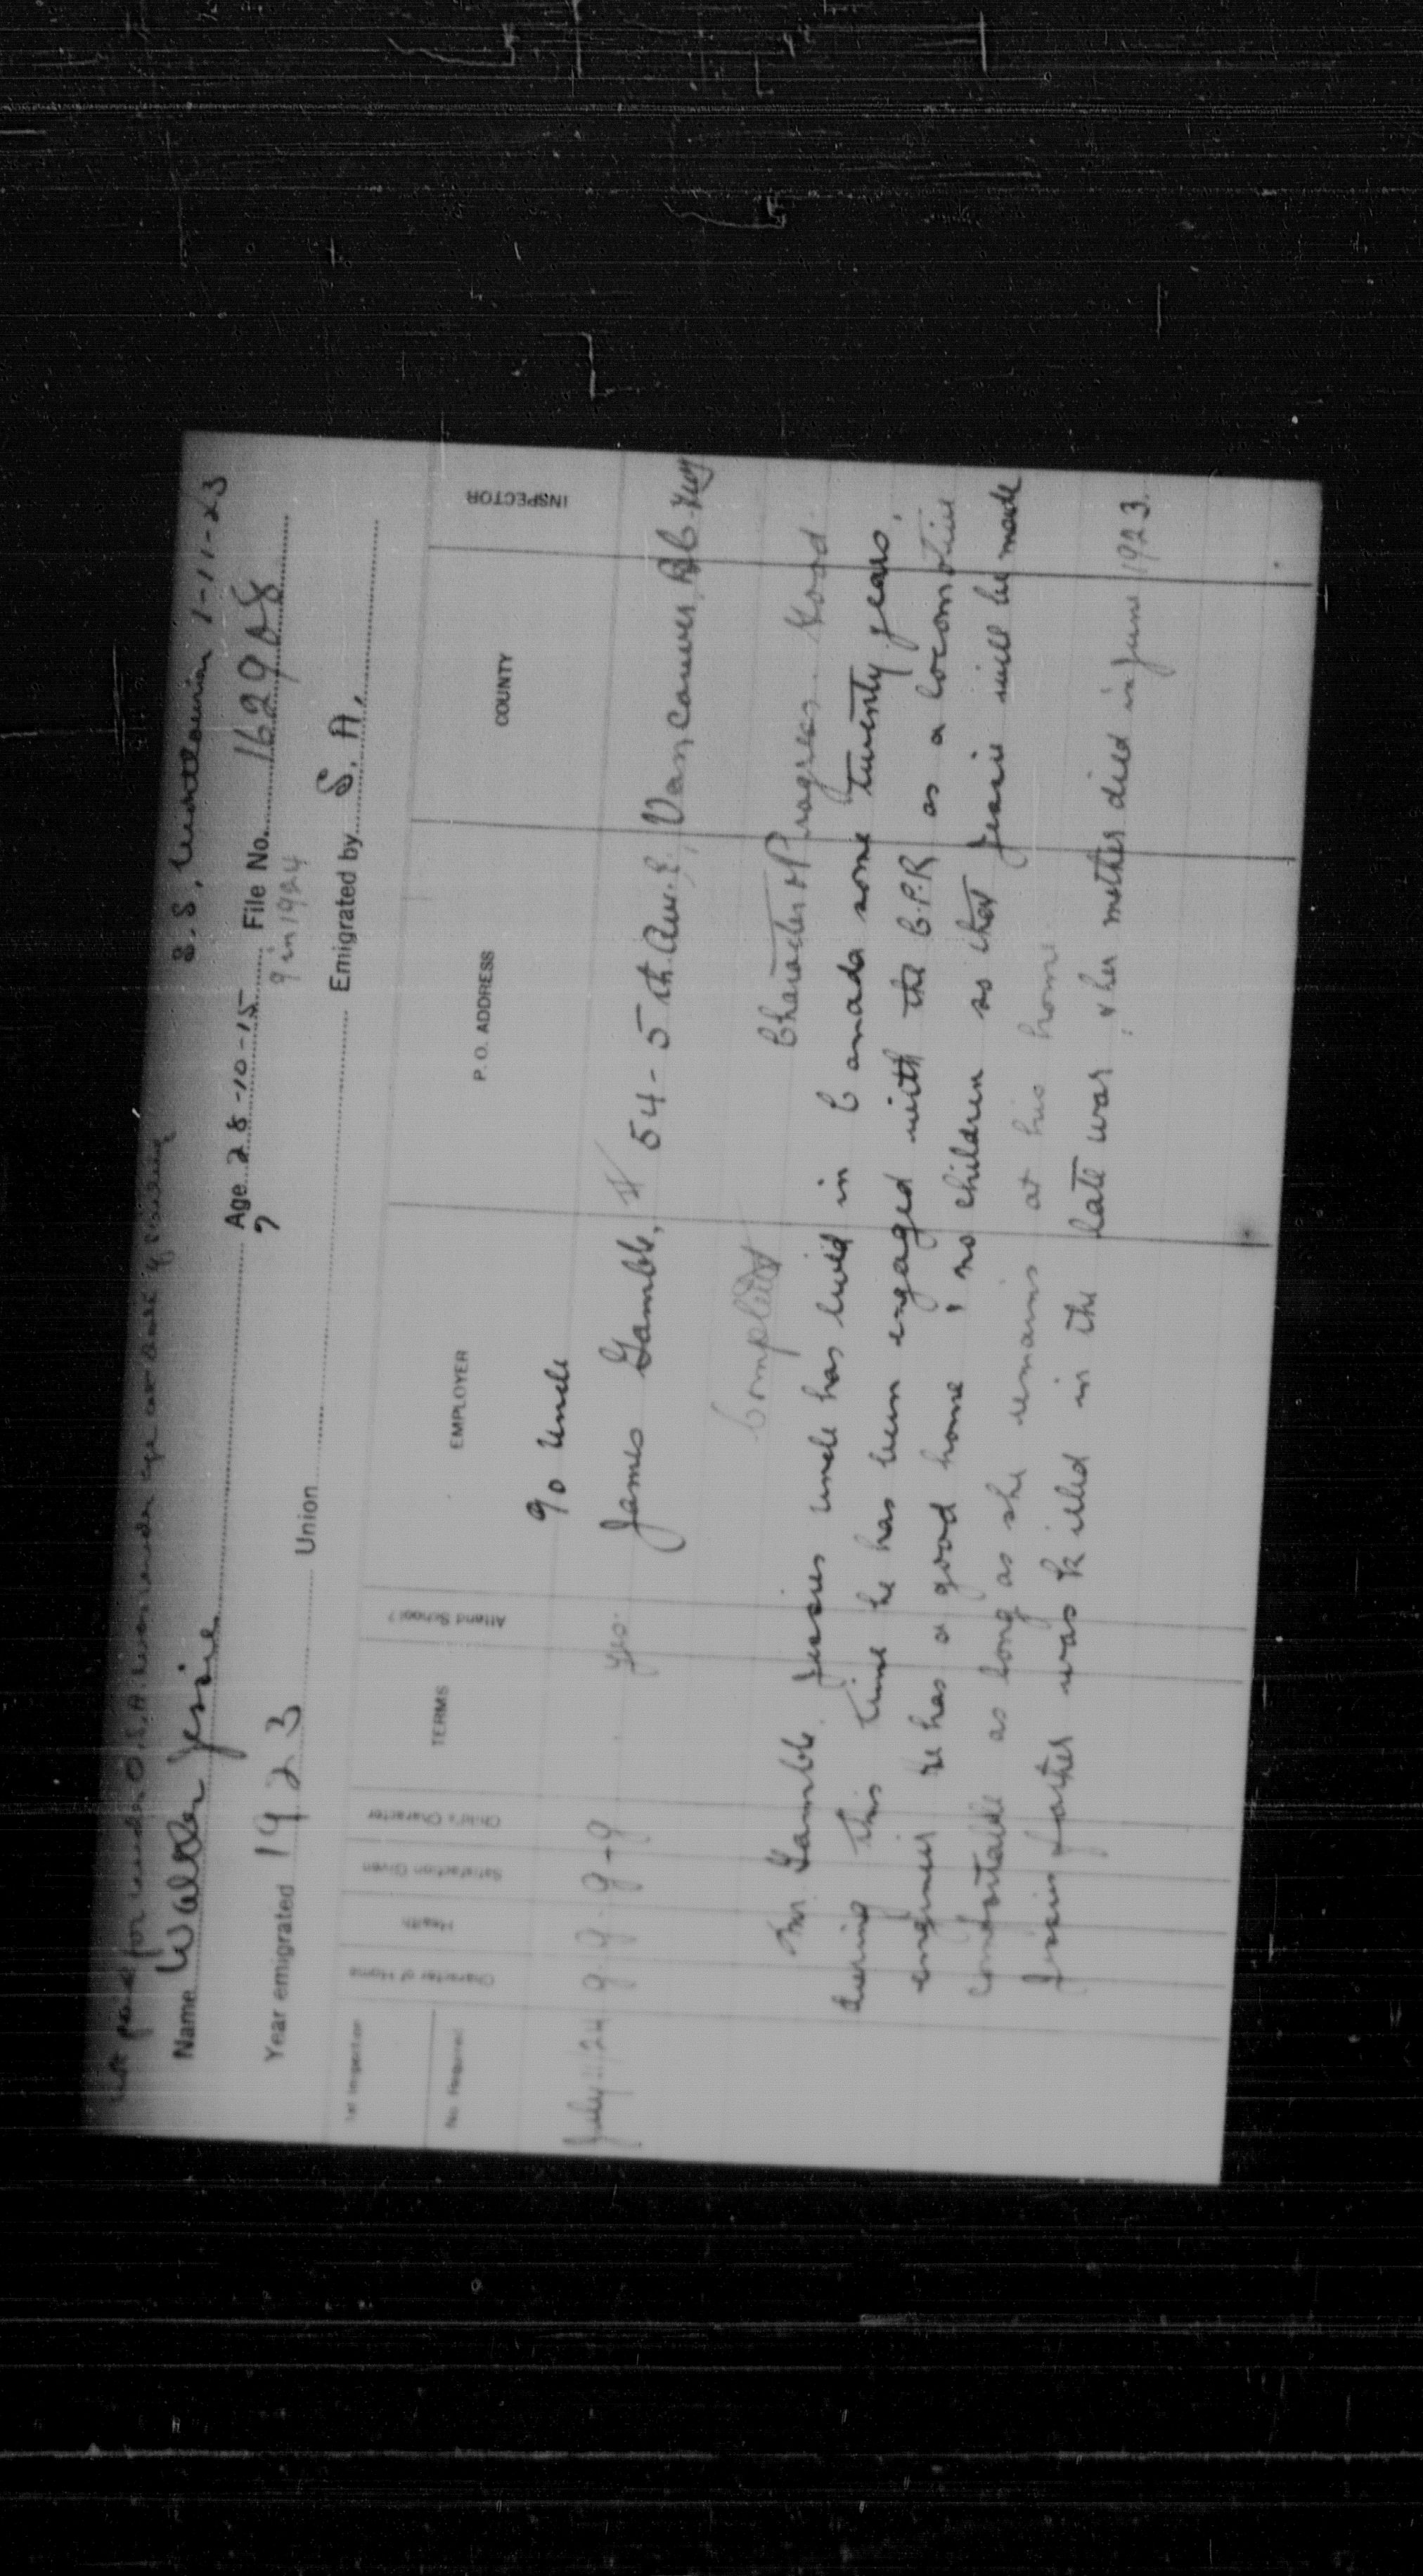 not paid for under O.S.A. was under age at date of sailing
S.S. 1-11-23
Name Walker Jessie Age 28-10-15 File No. 162908
7 9 in 1924
Year emigrated 1923 Union Emigrated by S. A.
1st Inspection
No. Required
Character of Home
Health
Satisfaction Given
Child's Character
TERMS
Attend School?
EMPLOYER
P. O. ADDRESS
COUNTY
INSPECTOR
go Uncle
July 24 g. g. g - g yes. James Gamble, 54 - 5th Ave. E., Vancouver, B.C.
Completed
Character & Progress. Good.
Mr. Gamble. Jessies uncle has lived in Canada some twenty years,
during this time he has been engaged with the C.P.R as a locomotive
engineer He has a good home, no children so that Jessie will be made
comfortable as long as she remains at his home
Jessies father was killed in the late war, & her mother died in June 1923.